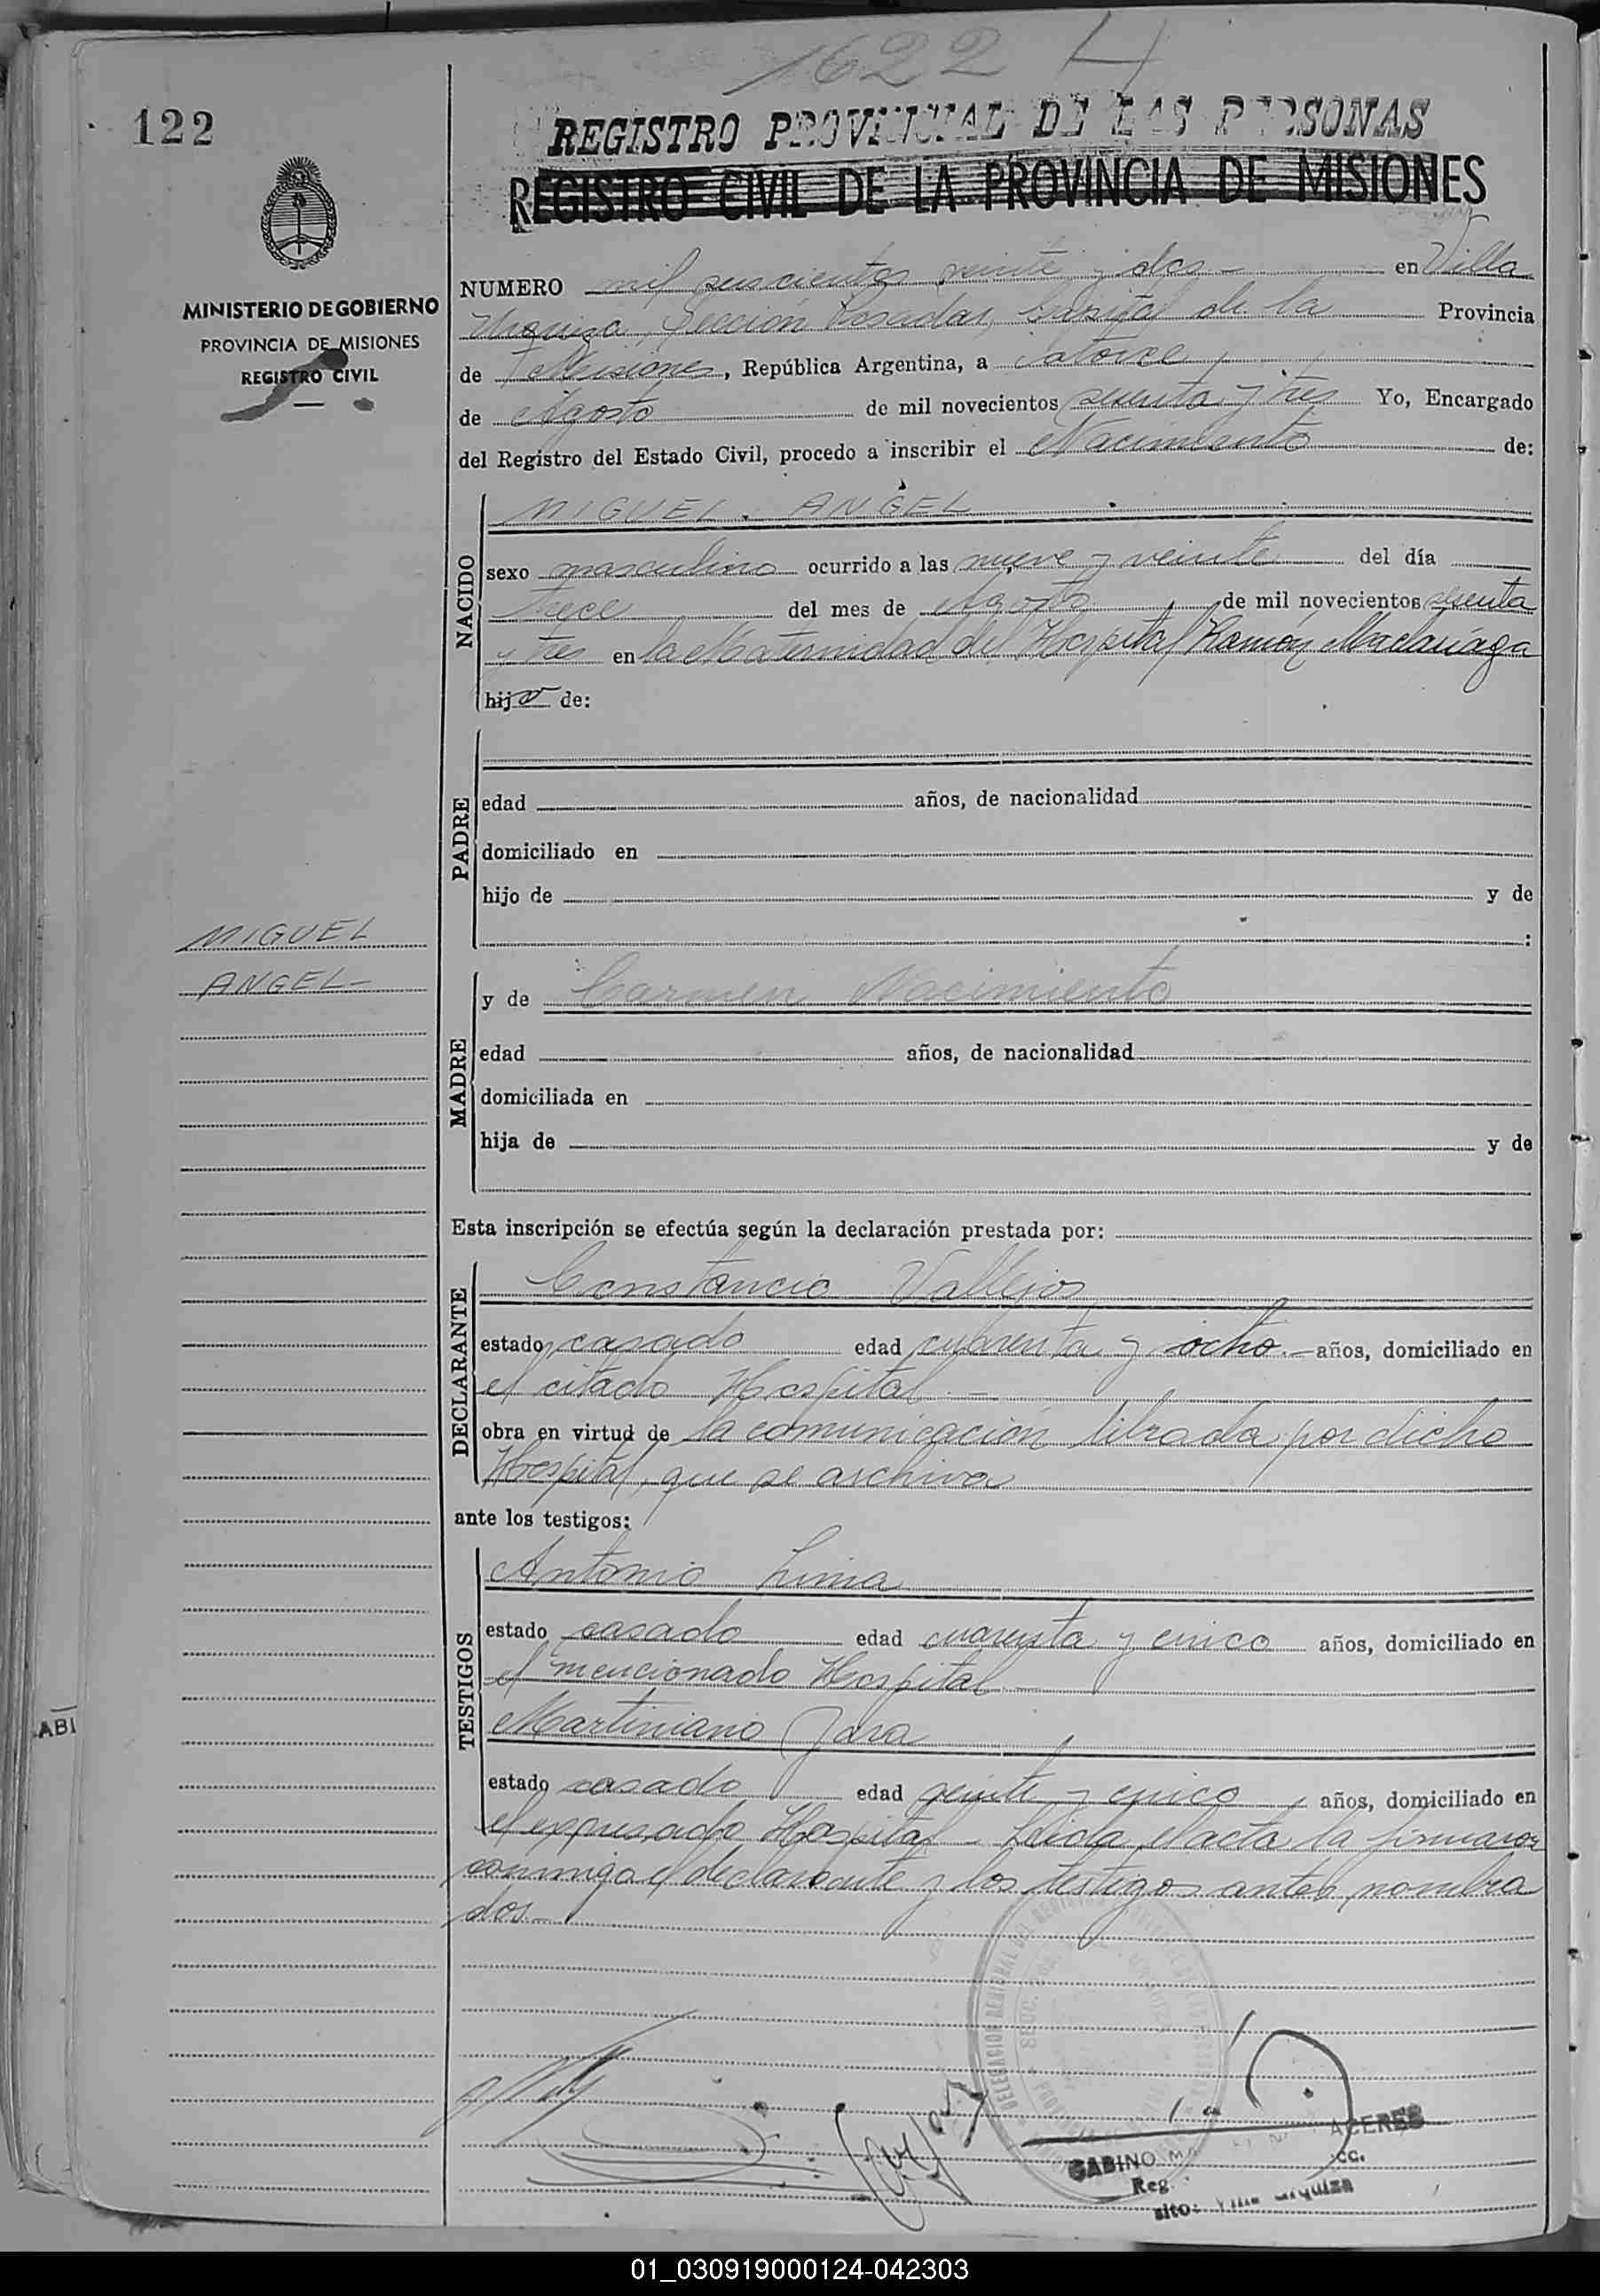 1622
122
REGISTRO PROVINCIAL DE LAS PERSONAS
REGISTRO CIVIL DE LA PROVINCIA DE MISIONES
MINISTERIO DE GOBIERNO
PROVINCIA DE MISIONES
REGISTRO CIVIL
NUMERO mil seiscientos veinte y dos - en Villa
Urquiza, Sección Posadas, Capital de la Provincia
de Misiones, República Argentina, a catorce
de Agosto de mil novecientos sesenta y tres Yo, Encargado
del Registro del Estado Civil, procedo a inscribir el Nacimiento de:
NACIDO
MIGUEL ANGEL
sexo masculino ocurrido a las nueve y veinte del día
trece del mes de Agosto de mil novecientos sesenta
y tres en la Maternidad del Hospital Ramón Madariaga
hijo de:
PADRE
edad años, de nacionalidad
domiciliado en
hijo de y de
:
MIGUEL
ANGEL-
MADRE
y de Carmen Nacimiento
edad años, de nacionalidad
domiciliada en
hija de y de
Esta inscripción se efectúa según la declaración prestada por:
DECLARANTE
Constancio Vallejos
estado casado edad cuarenta y ocho.- años, domiciliado en
el citado Hospital.-
obra en virtud de la comunicación librada por dicho
Hospital, que se archiva
ante los testigos:
TESTIGOS
Antonio Lima
estado casado edad cuarenta y cinco años, domiciliado en
el mencionado Hospital.-
Martiniano Jara
estado casado edad veinte y cinco años, domiciliado en
el expresado Hospital - Leida el acta la firmaron
conmigo el declarante y los testigos antes nombra
dos.-
ABI
DELEGACION REGIONAL DEL REGISTRO
SECC.
GABINO M. ACERES
Reg.
CC.
sito: Villa Urquiza
01_030919000124-042303